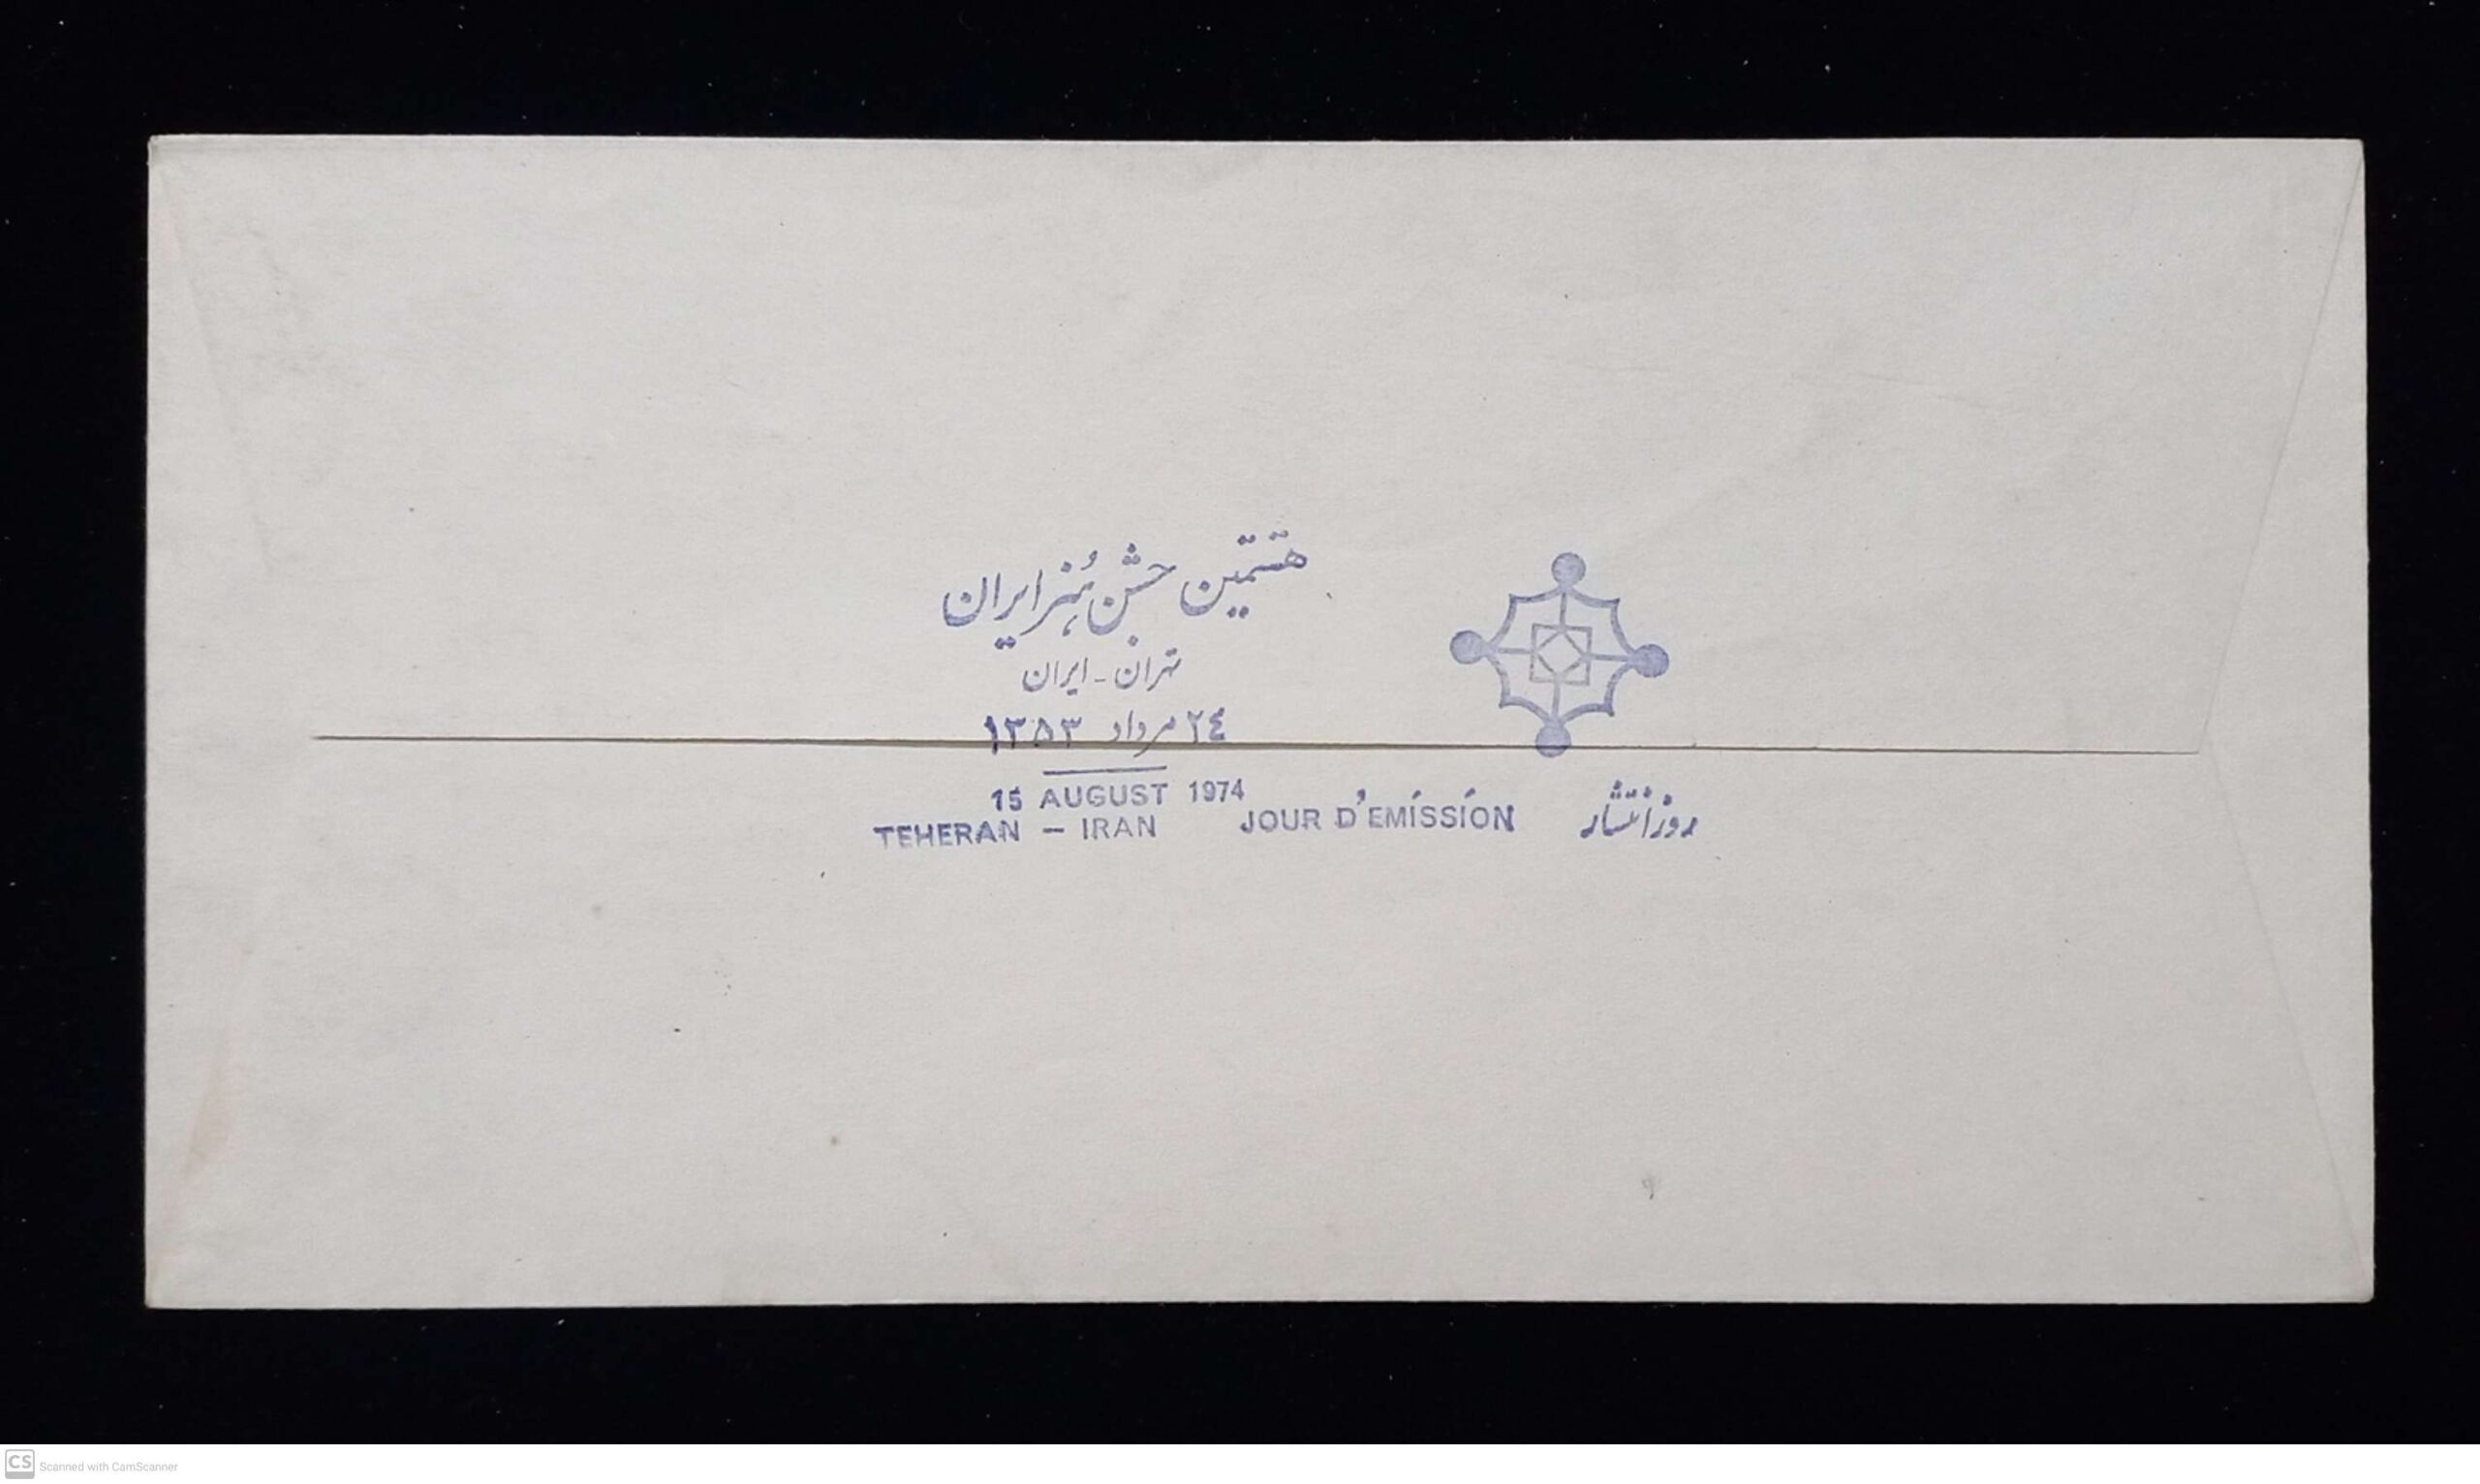 هشتمین جشن هنر ایران
تهران - ایران
٢٤ مرداد ١٣٥٣
15 AUGUST 1974
TEHERAN - IRAN
JOUR D'EMISSION
روز انتشار
CS Scanned with CamScanner